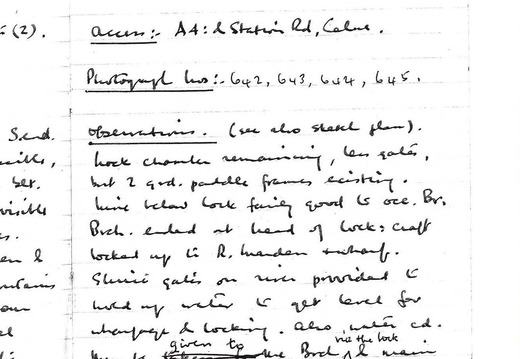 (2).
Access:- A4: & Station Rd, Calne.
Photograph Nos:- 642, 643, 644, 645.
Observations. (see also sketch plan).
Lock chamber remaining, less gates,
but 2 grd. paddle frames existing.
Line below lock fairly good to occ. Br.
Brch. ended at head of lock: craft
locked up to R. Marden & wharf.
Sluice gates on river provided to
hold up water to get level for
wharfage & locking. Also, water cd.
given to via the lock
the Brch & main
Send.
visible
&